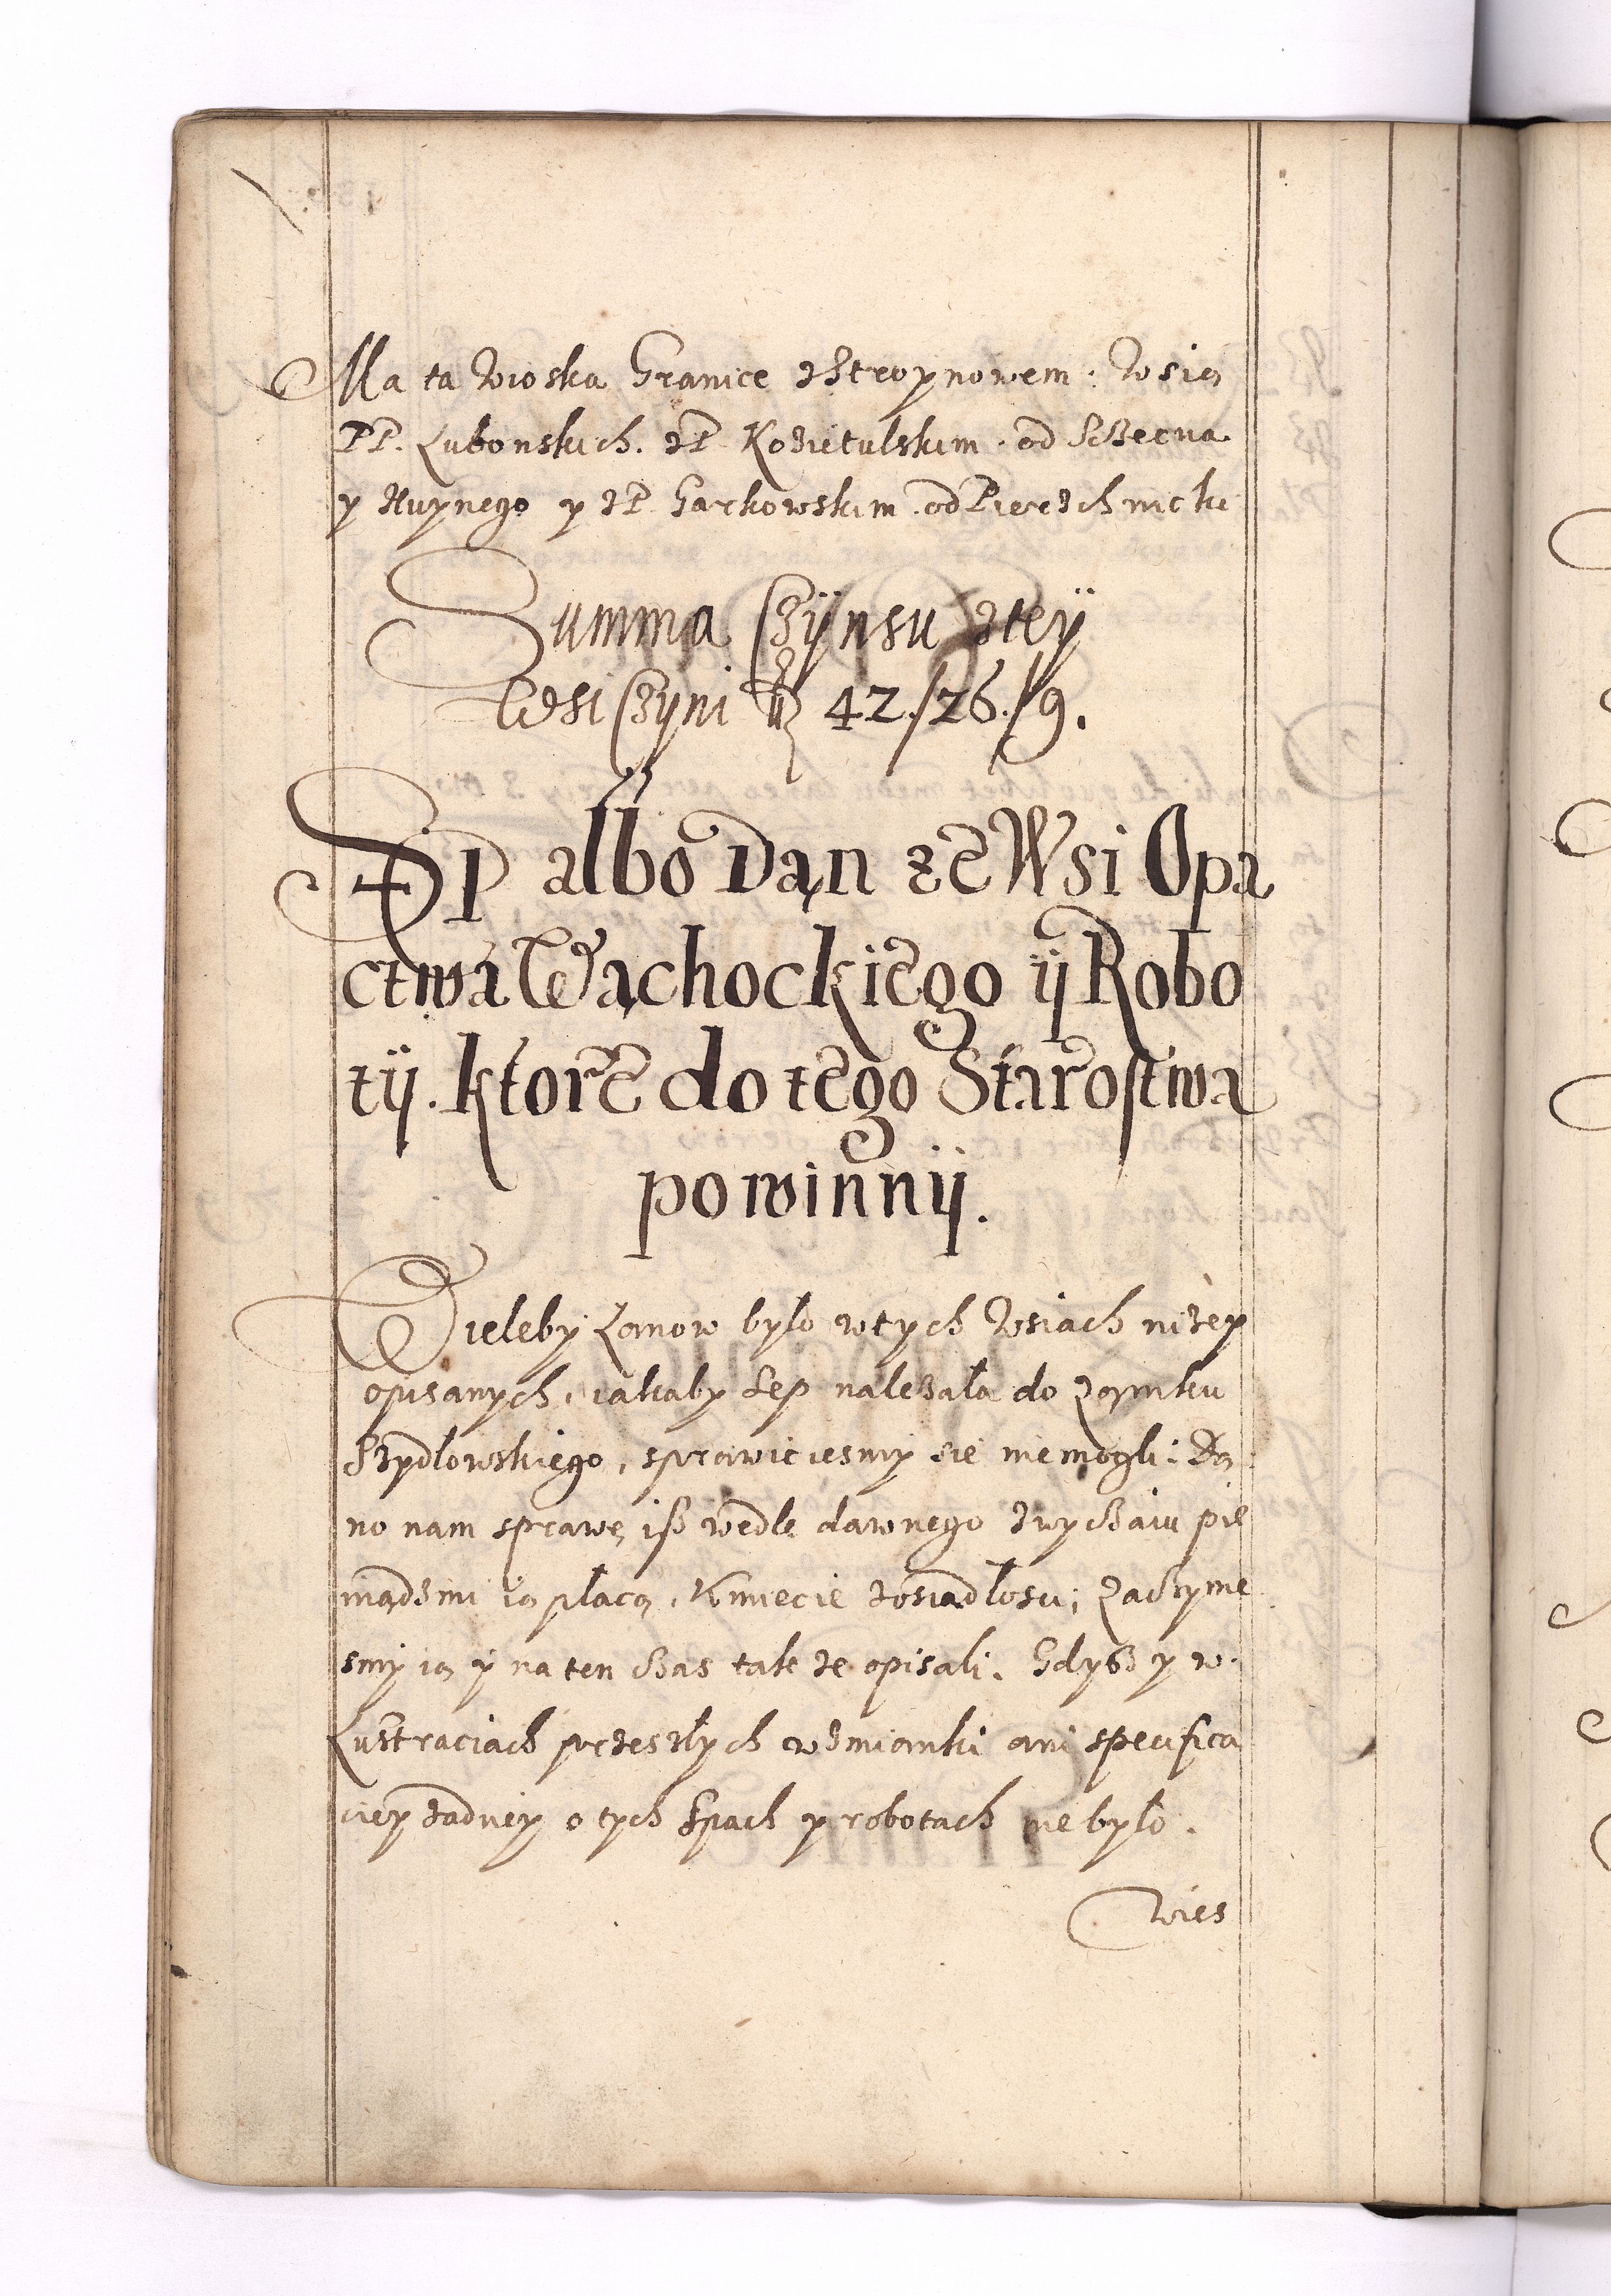 Ma ta wioska Granice z Stroynowem. Wsią
PP. Lubonskich. z P Kozietulskim. od Sczecna
y Huynego y z P Garkowskim. od Pierzchnicki
Summa Czÿnsu z teÿ
Wsi Czyni fl 42./26./9.
Sep albo Dań ze Wsi Opa
ctwa Wąchockiego ÿ Robo
tÿ. ktore do tego Starostwa
powinnÿ.
Wieleby Łanow było w tych Wsiach niżey
opisanych, iakaby Sep należała do Zamku
Szydłowskiego, sprawić iesmy się niemogli: Da
no nam sprawę, isz wedle dawnego zwyczaiu pie
niądzmi ią płacą, Kmiecie z osiadłosci; Zaczyme
smy ią y na ten czas także opisali. Gdysz y w
Lustraciach przeszłych wzmianki ani specifica
ciey żadney o tych Spach y robotach nie było.
Wies